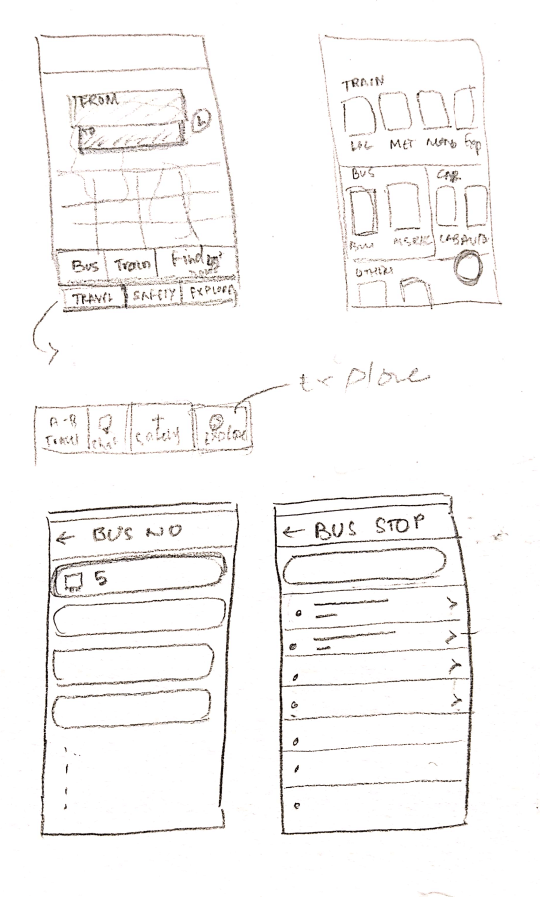 FROM
TO
Bus Train Find
TRAVEL SAFETY EXPLORE
TRAIN
LOC MET MONO Exp
BUS CAR
BUS CAB AUTO
OTHER
explore
A-B
Travel Chat Safety Explore
← BUS NO
5
← BUS STOP